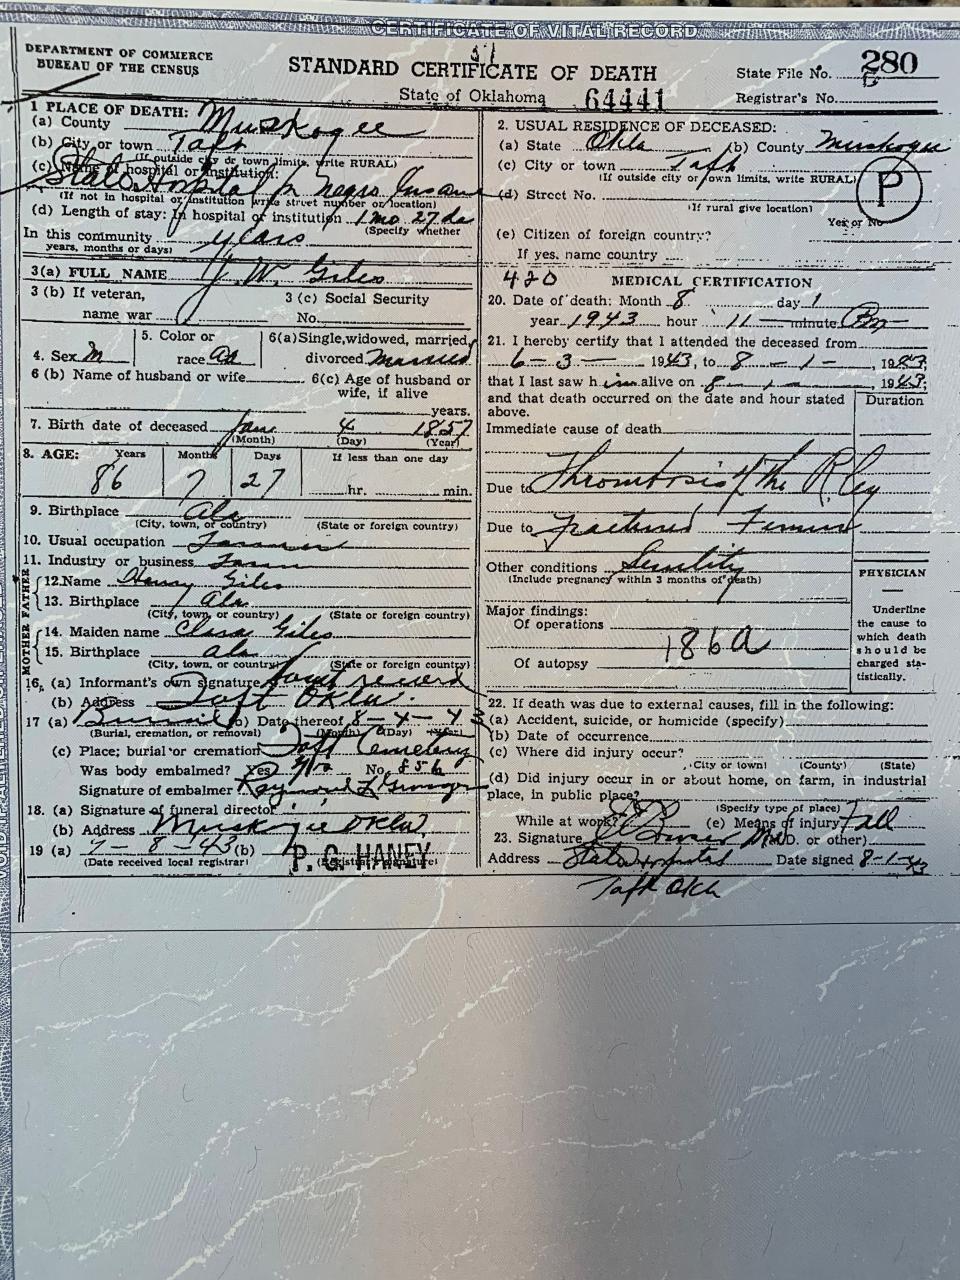 CERTIFICATE OF VITAL RECORD
DEPARTMENT OF COMMERCE
BUREAU OF THE CENSUS
51
STANDARD CERTIFICATE OF DEATH
State of Oklahoma 64441
State File No. 280
Registrar's No.
1 PLACE OF DEATH:
(a) County Muskogee
(b) City or town Taft
(If outside city or town limits, write RURAL)
(c) Name of hospital or institution:
State Hospital for Negro Insane
(If not in hospital or institution write street number or location)
(d) Length of stay: In hospital or institution 1 mo 27 da
(Specify whether
In this community years
years, months or days)
3(a) FULL NAME J. W. Giles
3 (b) If veteran,
name war
3 (c) Social Security
No.
4. Sex M
5. Color or
race
6(a)Single,widowed, married,
divorced Married
6 (b) Name of husband or wife
6(c) Age of husband or
wife, if alive
years.
7. Birth date of deceased Jan 4 1857
(Month) (Day) (Year)
8. AGE: Years Months Days If less than one day
86 7 27 hr. min.
9. Birthplace Ala
(City, town, or country) (State or foreign country)
10. Usual occupation Farmer
11. Industry or business Farm
FATHER
12.Name Henry Giles
13. Birthplace Ala
(City, town, or country) (State or foreign country)
MOTHER
14. Maiden name Clara Giles
15. Birthplace Ala
(City, town, or country) (State or foreign country)
16. (a) Informant's own signature Court record
(b) Address Taft Okla.
17 (a) Burial (b) Date thereof 8-4-43
(Burial, cremation, or removal) (Month) (Day) (Year)
(c) Place; burial or cremation Taft Cemetery
Was body embalmed? Yes No. 856
Signature of embalmer Raymond L
18. (a) Signature of funeral director
(b) Address Muskogee Okla.
19 (a) 7-8-43 (b) P. G. HANEY
(Date received local registrar) (Registrar's signature)
2. USUAL RESIDENCE OF DECEASED:
(a) State Okla (b) County Muskogee
(c) City or town Taft
(If outside city or town limits, write RURAL)
P
(d) Street No.
(If rural give location)
Yes or No
(e) Citizen of foreign country?
If yes, name country
420 MEDICAL CERTIFICATION
20. Date of death: Month 8 day 1
year 1943 hour 11 minute Pm
21. I hereby certify that I attended the deceased from
6-3- 1943, to 8-1-, 1943;
that I last saw him alive on 8-1-, 1943;
and that death occurred on the date and hour stated
above.
Duration
Immediate cause of death
Due to Thrombosis of the R. leg
Due to Fractured Femur
Other conditions Senility
(Include pregnancy within 3 months of death)
PHYSICIAN
Major findings:
Of operations
186a
Of autopsy
Underline
the cause to
which death
should be
charged sta-
tistically.
22. If death was due to external causes, fill in the following:
(a) Accident, suicide, or homicide (specify)
(b) Date of occurrence
(c) Where did injury occur?
(City or town) (County) (State)
(d) Did injury occur in or about home, on farm, in industrial
place, in public place?
(Specify type of place)
While at work? (e) Means of injury Fall
23. Signature M.D. or other)
Address State Hospital Date signed 8-1-43
Taft Okla